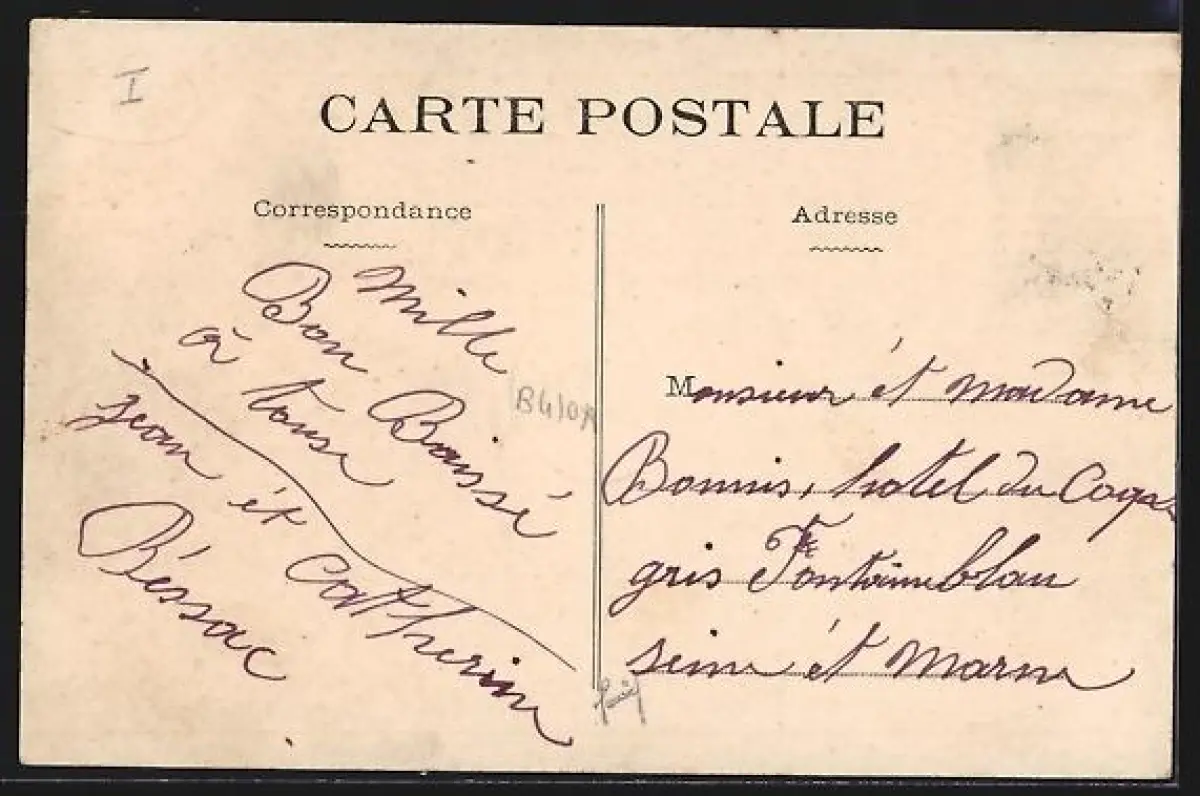 I
CARTE POSTALE
Correspondance
Mille
Bon Baissé
à touse
jean ét Catherine
Béssac
B410A
Adresse
Monsieur ét madame
Bonnis, hotel du
gris Fontaineblau
seine ét Marne